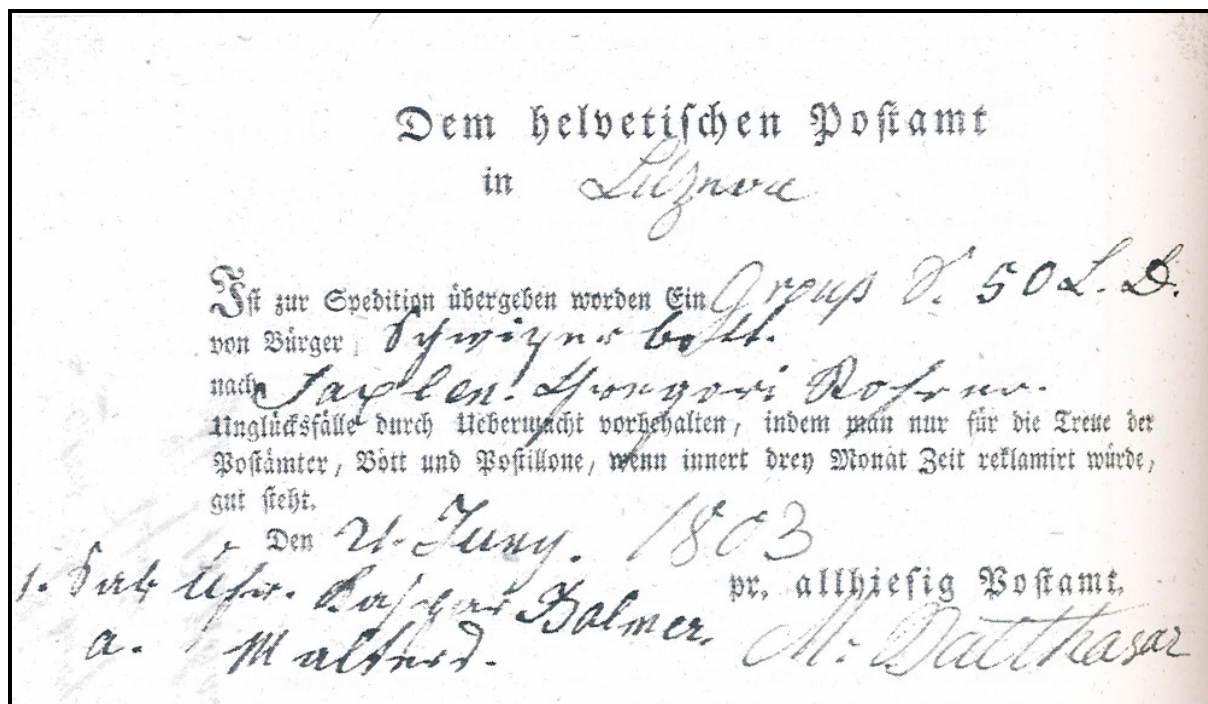 Dem helvetischen Postamt
in Luzern
Ist zur Spedition übergeben worden Ein 50 L. D.
von Bürger
nach Saxlen. Rohrer.
Unglücksfälle durch Uebermacht vorbehalten, indem man nur für die Treue der
Postämter, Bött und Postillone, wenn innert drey Monat Zeit reklamirt würde,
gut steht.
Den 21. Juny. 1803
pr. allhiesig Postamt.
1. Bolmer.
a. M. Balthasar